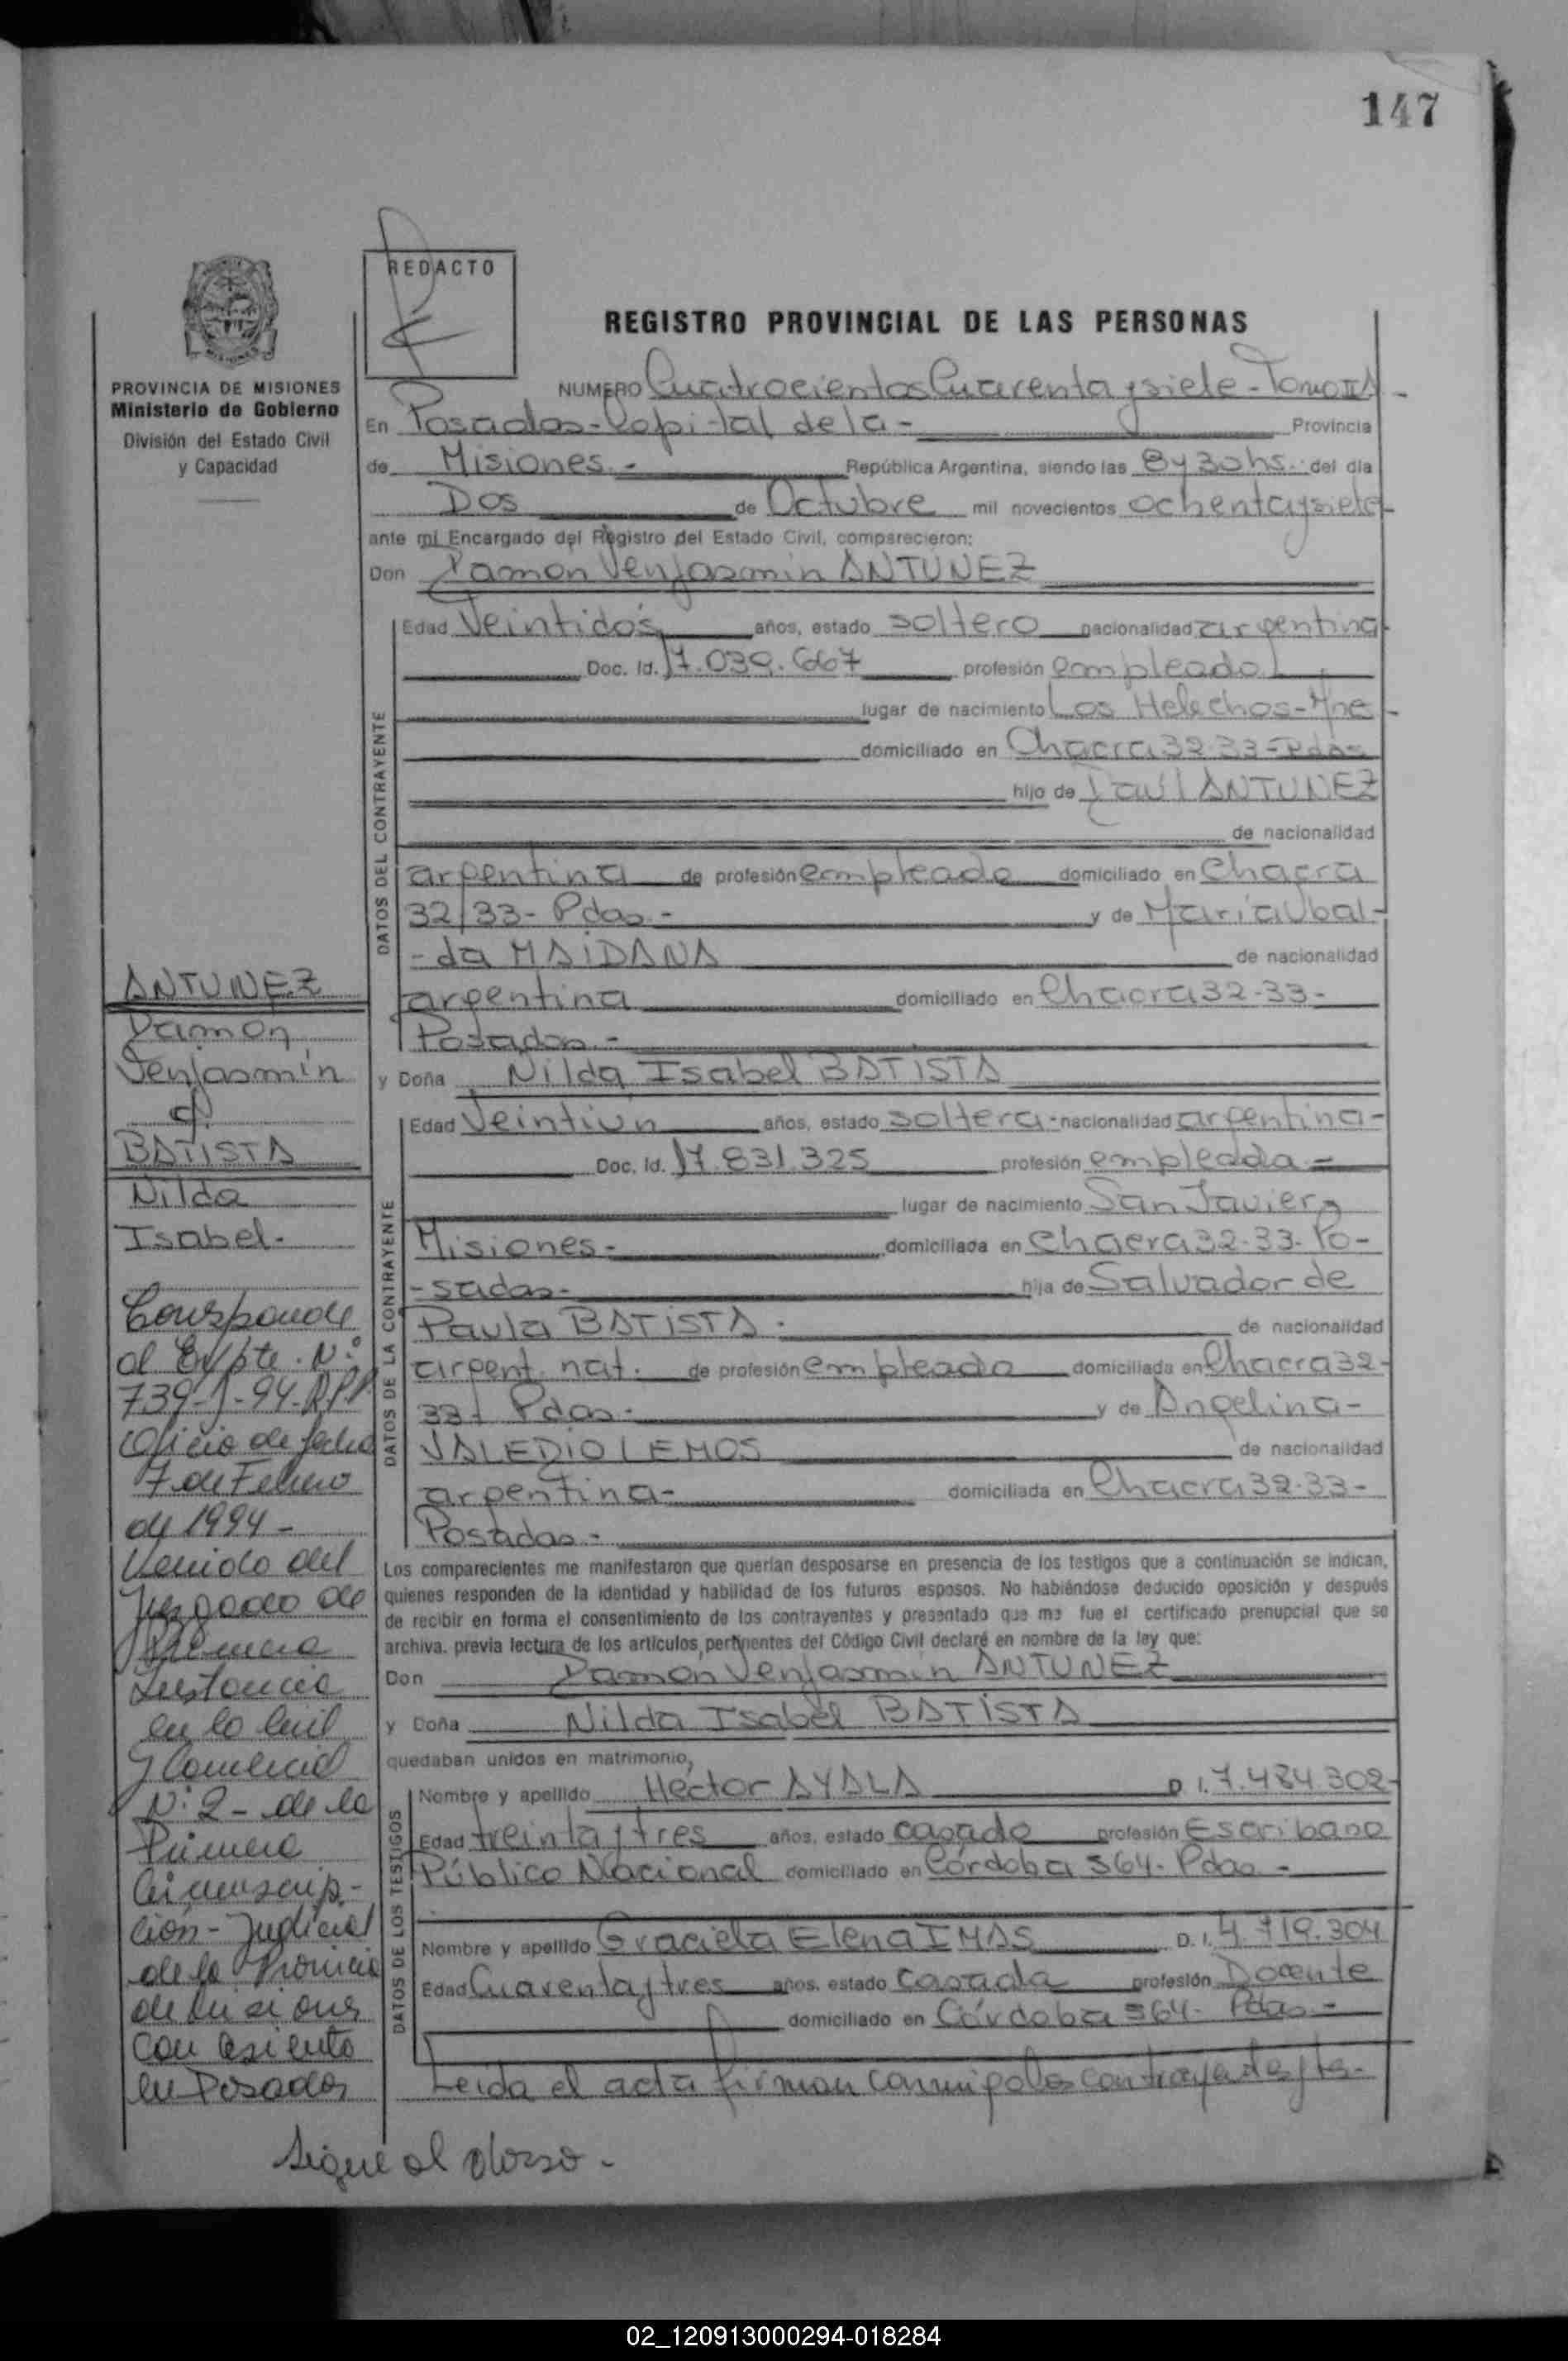 147
REDACTO
REGISTRO PROVINCIAL DE LAS PERSONAS
PROVINCIA DE MISIONES
Ministerio de Gobierno
División del Estado Civil
y Capacidad
NUMERO Cuatrocientos Cuarenta y siete - Tomo II
En Posadas - Capital de la - Provincia
de Misiones - República Argentina, siendo las 8 y 30 hs. del día
Dos de Octubre mil novecientos ochenta y siete -
ante mi Encargado del Registro del Estado Civil, comparecieron:
Don Ramon Venjasmin ANTUNEZ
DATOS DEL CONTRAYENTE
Edad Veintidós años, estado soltero nacionalidad argentina
Doc. Id. 17.039.667 profesión empleado
lugar de nacimiento Los Helechos - Mne -
domiciliado en Chacra 32-33 - Pdas
hijo de Raúl ANTUNEZ
de nacionalidad
argentina de profesión empleado domiciliado en Chacra
32/33 - Pdas - y de María Ubal-
- da MAIDANA de nacionalidad
argentina domiciliado en Chacra 32-33 -
Posadas -
y Doña Nilda Isabel BATISTA
DATOS DE LA CONTRAYENTE
Edad Veintiun años, estado soltera - nacionalidad argentina -
Doc. Id. 17.831.325 profesión empleada -
lugar de nacimiento San Javier
Misiones - domiciliada en Chacra 32-33 - Po-
- sadas - hija de Salvador de
Paula BATISTA - de nacionalidad
argent. nat. de profesión empleado domiciliada en Chacra 32-
33 - Pdas - y de Angelina -
VALEDIO LEMOS de nacionalidad
argentina - domiciliada en Chacra 32-33 -
Posadas -
Los comparecientes me manifestaron que querían desposarse en presencia de los testigos que a continuación se indican,
quienes responden de la identidad y habilidad de los futuros esposos. No habiéndose deducido oposición y después
de recibir en forma el consentimiento de los contrayentes y presentado que me fue el certificado prenupcial que se
archiva. previa lectura de los artículos pertinentes del Código Civil declaré en nombre de la ley que:
Don Ramon Venjasmin ANTUNEZ
y Doña Nilda Isabel BATISTA
quedaban unidos en matrimonio,
DATOS DE LOS TESTIGOS
Nombre y apellido Héctor AYALA D. I. 7.484.302 -
Edad treinta y tres años, estado casado profesión Escribano
Público Nacional domiciliado en Córdoba 364 - Pdas -
Nombre y apellido Graciela Elena IMAS D. I. 4.719.304
Edad Cuarenta y tres años, estado casada profesión Docente
domiciliado en Córdoba 364 - Pdas -
Leída el acta firman conmigo los contrayentes y tes-
ANTUNEZ
Ramon
Venjasmin
c/
BATISTA
Nilda
Isabel -
Corresponde
al Expte. Nº
739-J-94-RPP
Oficio de fecha
7 de Febrero
de 1994 -
Venido del
Juzgado de
Primera
Instancia
en lo Civil
y Comercial
Nº 2 - de la
Primera
Circunscrip-
ción - Judicial
de la Provincia
de Misiones
con asiento
en Posadas
Sigue al dorso -
02_120913000294-018284